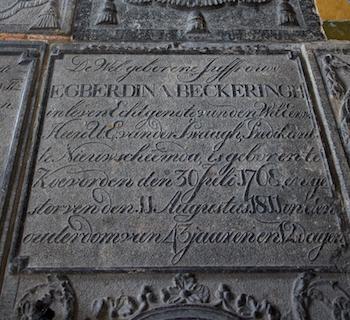 De Wel geborene Juffrouw
EGBERDINA BECKERINGH
in leven Echtgenote van den Wel eerw.
Heer U. E. van der Swaagh, Predikant
te Nieuwscheemda, is geboren te
Koevorden den 30 Julÿ 1768 en ge
storven den 11 Augustus 1811 in den
ouderdom van 43 jaaren en 12 dagen